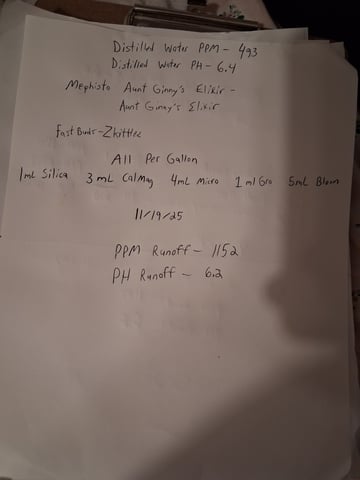 Distilled Water PPM - 493
Distilled Water PH - 6.4
Mephisto Aunt Ginny's Elixir -
Aunt Ginny's Elixir
Fast Buds - Zkittlez
All Per Gallon
1mL Silica 3mL CalMag 4mL Micro 1ml Gro 5mL Bloom
11/19/25
PPM Runoff - 1152
PH Runoff - 6.2